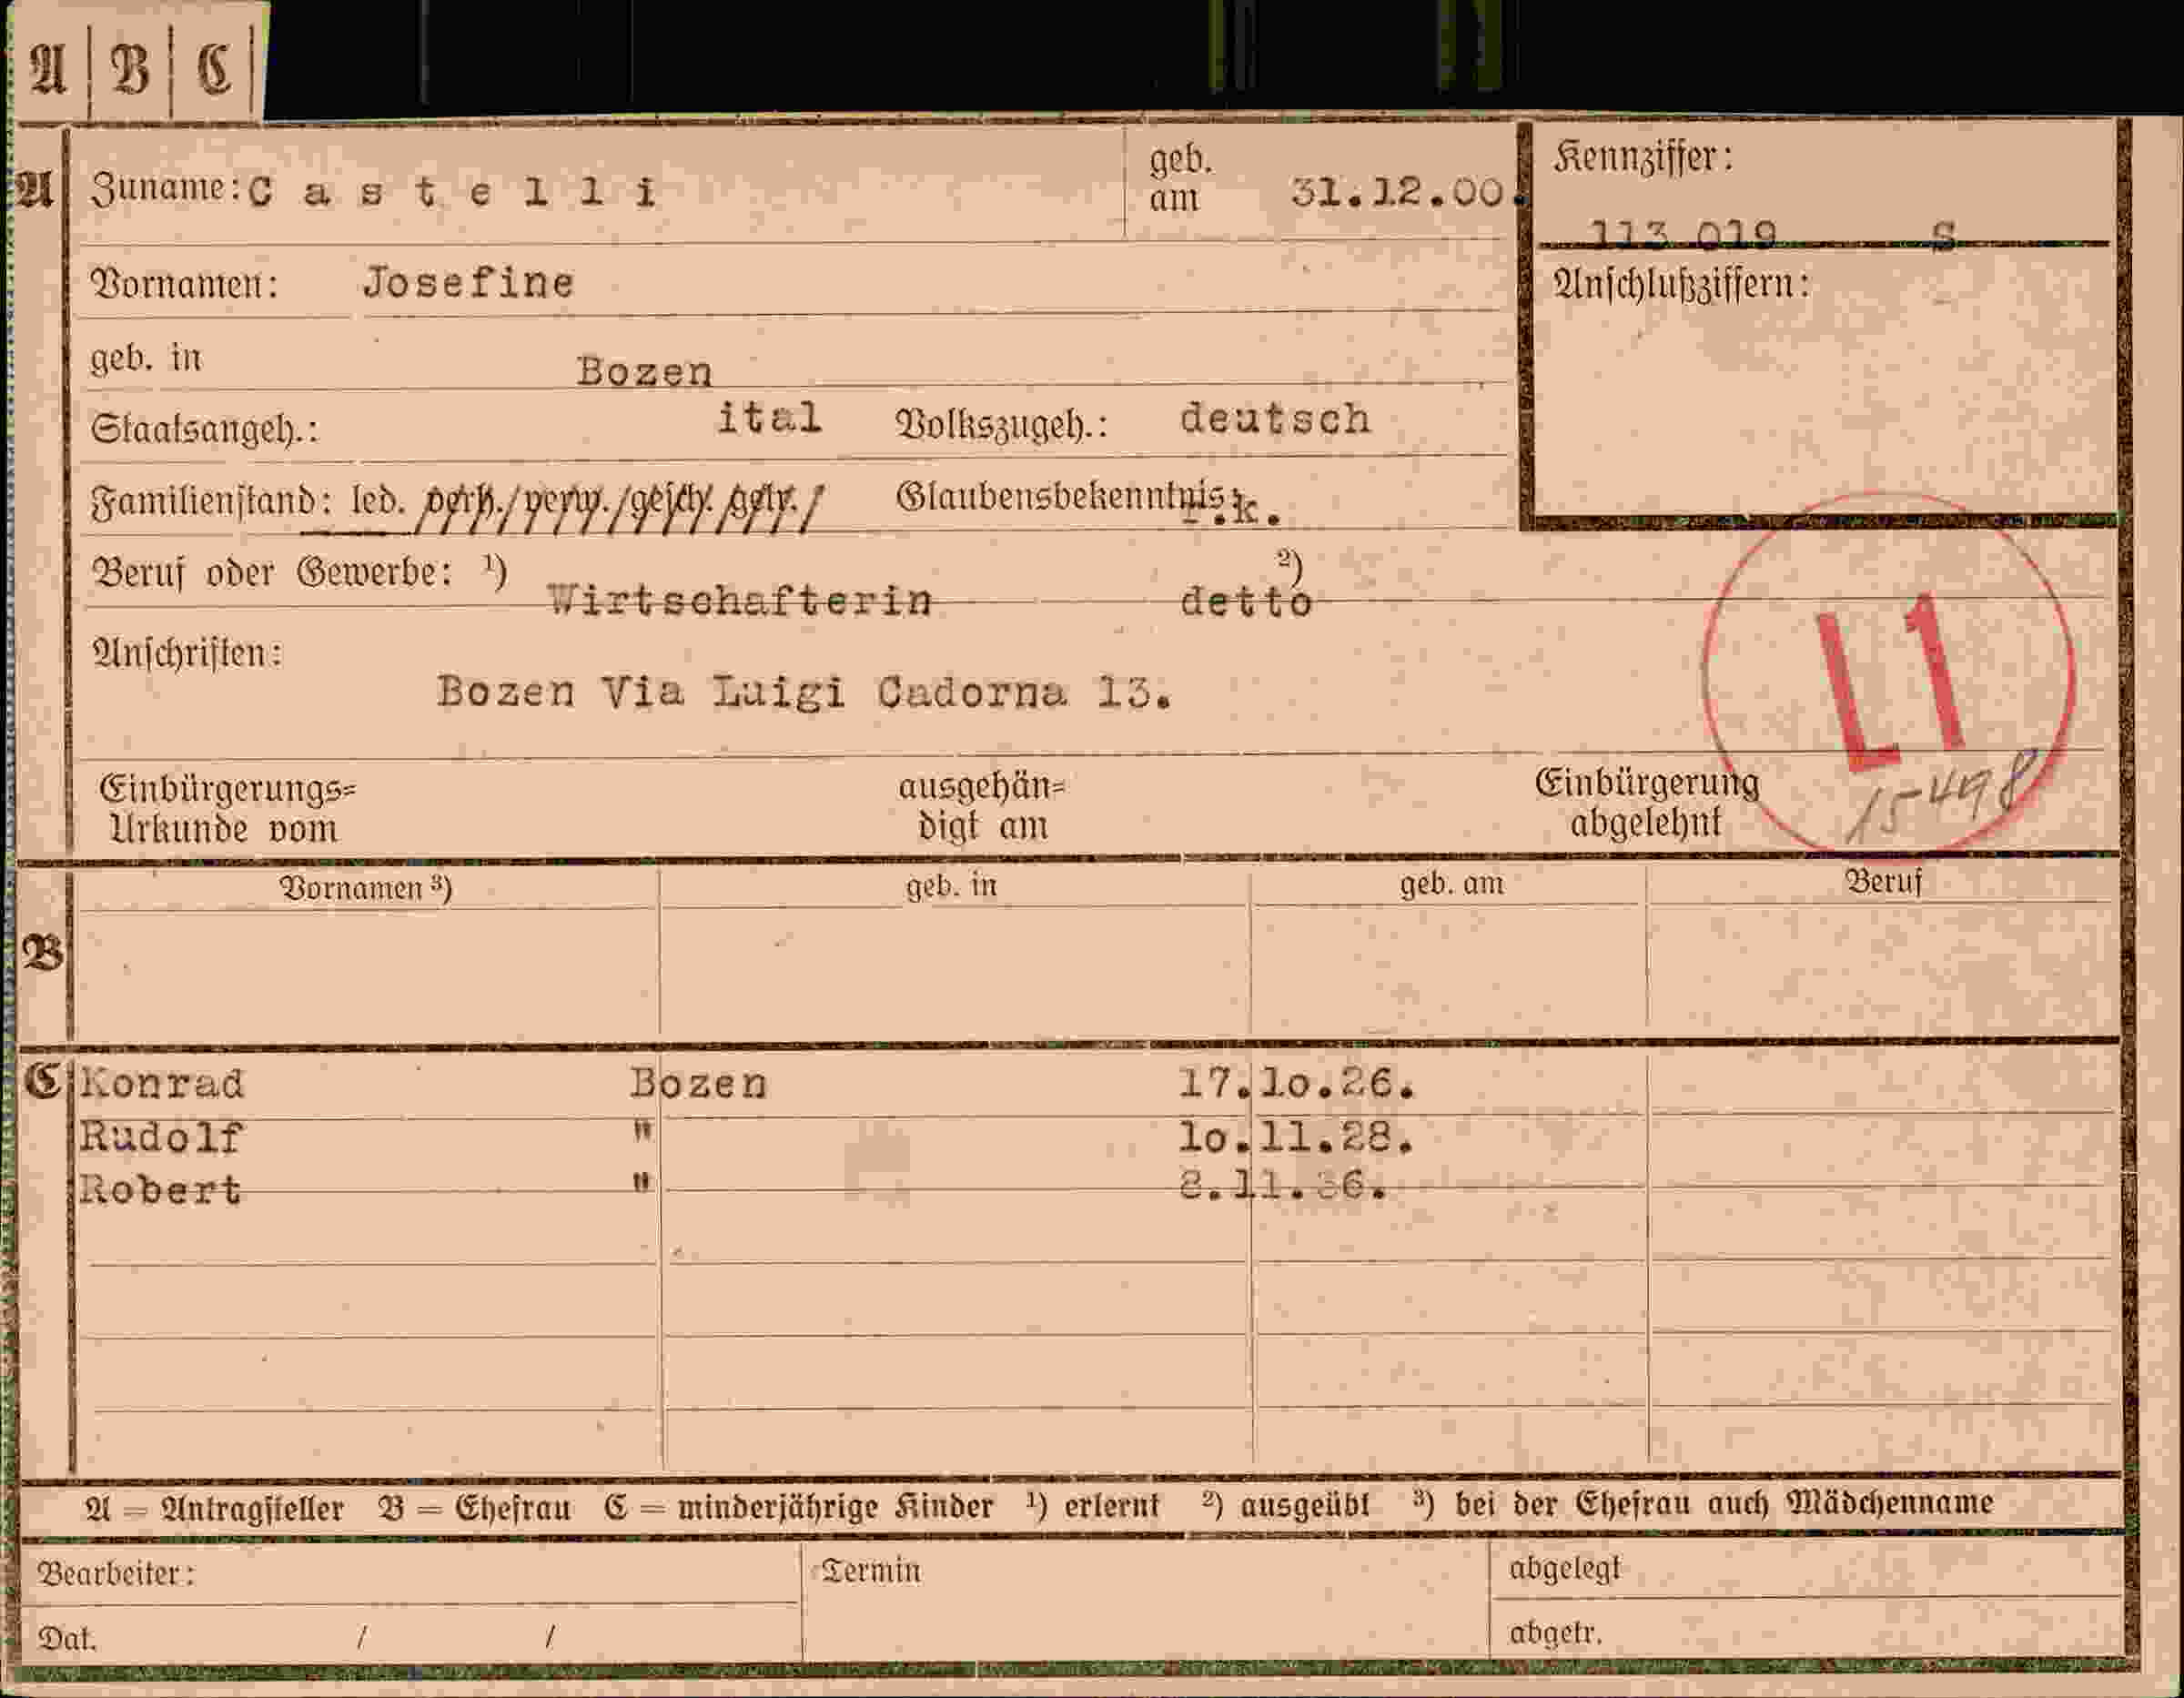 A | B | C |
A Zuname: C a s t e l l i geb. am 31.12.00. Kennziffer:
113 019 S
Vornamen: Josefine Anschlußziffern:
geb. in Bozen
Staatsangeh.: ital Volkszugeh.: deutsch
Familienstand: led. verh./verw./gesch. getr./ Glaubensbekenntnis: r.k.
Beruf oder Gewerbe: ¹) Wirtschafterin ²) detto
Anschriften:
Bozen Via Luigi Cadorna 13.
L1
15498
Einbürgerungs= ausgehän= Einbürgerung
Urkunde vom digt am abgelehnt
Vornamen ³) geb. in geb. am Beruf
B
C Konrad Bozen 17.10.26.
Rudolf " 10.11.28.
Robert " 8.11.36.
A = Antragsteller B = Ehefrau C = minderjährige Kinder ¹) erlernt ²) ausgeübt ³) bei der Ehefrau auch Mädchenname
Bearbeiter: Termin abgelegt
Dat. / / abgetr.